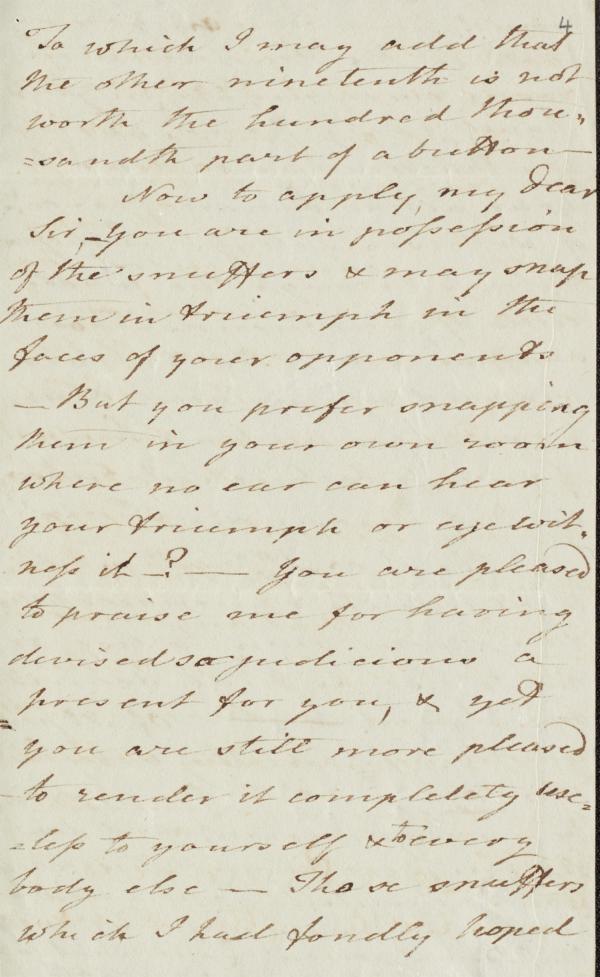 4
To which I may add that
the other nineteenth is not
worth the hundred thou=
=sandth part of a button—
Now to apply, my dear
Sir,—you are in possession
of the snuffers & may snap
them in triumph in the
faces of your opponents
— But you prefer snapping
them in your own room
where no ear can hear
your triumph or eye wit=
ness it —? — You are pleased
to praise me for having
devised so judicious a
present for you, & yet
you are still more pleased
to render it completely use=
=less to yourself & to every
body else — Those snuffers
which I had fondly hoped